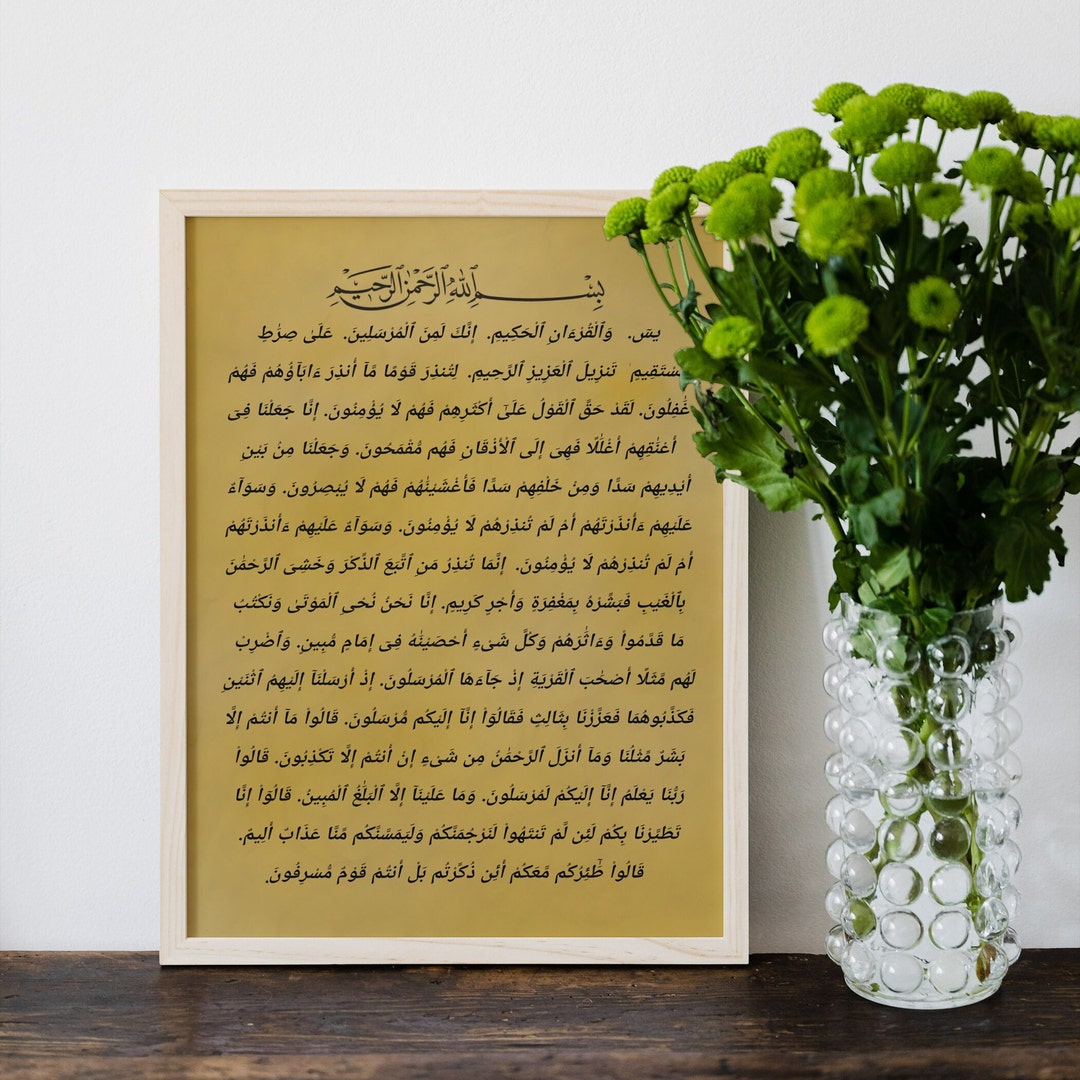 بِسْمِ ٱللَّهِ ٱلرَّحْمَٰنِ ٱلرَّحِيمِ
يسٓ. وَٱلْقُرْءَانِ ٱلْحَكِيمِ. إِنَّكَ لَمِنَ ٱلْمُرْسَلِينَ. عَلَىٰ صِرَٰطٍ
تَنزِيلَ ٱلْعَزِيزِ ٱلرَّحِيمِ. لِتُنذِرَ قَوْمًا مَّآ أُنذِرَ ءَابَآؤُهُمْ فَهُمْ
غَٰفِلُونَ. لَقَدْ حَقَّ ٱلْقَوْلُ عَلَىٰٓ أَكْثَرِهِمْ فَهُمْ لَا يُؤْمِنُونَ. إِنَّا جَعَلْنَا فِىٓ
أَعْنَٰقِهِمْ أَغْلَٰلًا فَهِىَ إِلَى ٱلْأَذْقَانِ فَهُم مُّقْمَحُونَ. وَجَعَلْنَا مِنۢ بَيْنِ
أَيْدِيهِمْ سَدًّا وَمِنْ خَلْفِهِمْ سَدًّا فَأَغْشَيْنَٰهُمْ فَهُمْ لَا يُبْصِرُونَ. وَسَوَآءٌ
عَلَيْهِمْ ءَأَنذَرْتَهُمْ أَمْ لَمْ تُنذِرْهُمْ لَا يُؤْمِنُونَ. وَسَوَآءٌ عَلَيْهِمْ ءَأَنذَرْتَهُمْ
أَمْ لَمْ تُنذِرْهُمْ لَا يُؤْمِنُونَ. إِنَّمَا تُنذِرُ مَنِ ٱتَّبَعَ ٱلذِّكْرَ وَخَشِىَ ٱلرَّحْمَٰنَ
بِٱلْغَيْبِ فَبَشِّرْهُ بِمَغْفِرَةٍ وَأَجْرٍ كَرِيمٍ. إِنَّا نَحْنُ نُحْىِ ٱلْمَوْتَىٰ وَنَكْتُبُ
مَا قَدَّمُوا۟ وَءَاثَٰرَهُمْ وَكُلَّ شَىْءٍ أَحْصَيْنَٰهُ فِىٓ إِمَامٍ مُّبِينٍ. وَٱضْرِبْ
لَهُم مَّثَلًا أَصْحَٰبَ ٱلْقَرْيَةِ إِذْ جَآءَهَا ٱلْمُرْسَلُونَ. إِذْ أَرْسَلْنَآ إِلَيْهِمُ ٱثْنَيْنِ
فَكَذَّبُوهُمَا فَعَزَّزْنَا بِثَالِثٍ فَقَالُوٓا۟ إِنَّآ إِلَيْكُم مُّرْسَلُونَ. قَالُوا۟ مَآ أَنتُمْ إِلَّا
بَشَرٌ مِّثْلُنَا وَمَآ أَنزَلَ ٱلرَّحْمَٰنُ مِن شَىْءٍ إِنْ أَنتُمْ إِلَّا تَكْذِبُونَ. قَالُوا۟
رَبُّنَا يَعْلَمُ إِنَّآ إِلَيْكُمْ لَمُرْسَلُونَ. وَمَا عَلَيْنَآ إِلَّا ٱلْبَلَٰغُ ٱلْمُبِينُ. قَالُوٓا۟ إِنَّا
تَطَيَّرْنَا بِكُمْ لَئِن لَّمْ تَنتَهُوا۟ لَنَرْجُمَنَّكُمْ وَلَيَمَسَّنَّكُم مِّنَّا عَذَابٌ أَلِيمٌ.
قَالُوا۟ طَٰٓئِرُكُم مَّعَكُمْ أَئِن ذُكِّرْتُم بَلْ أَنتُمْ قَوْمٌ مُّسْرِفُونَ.